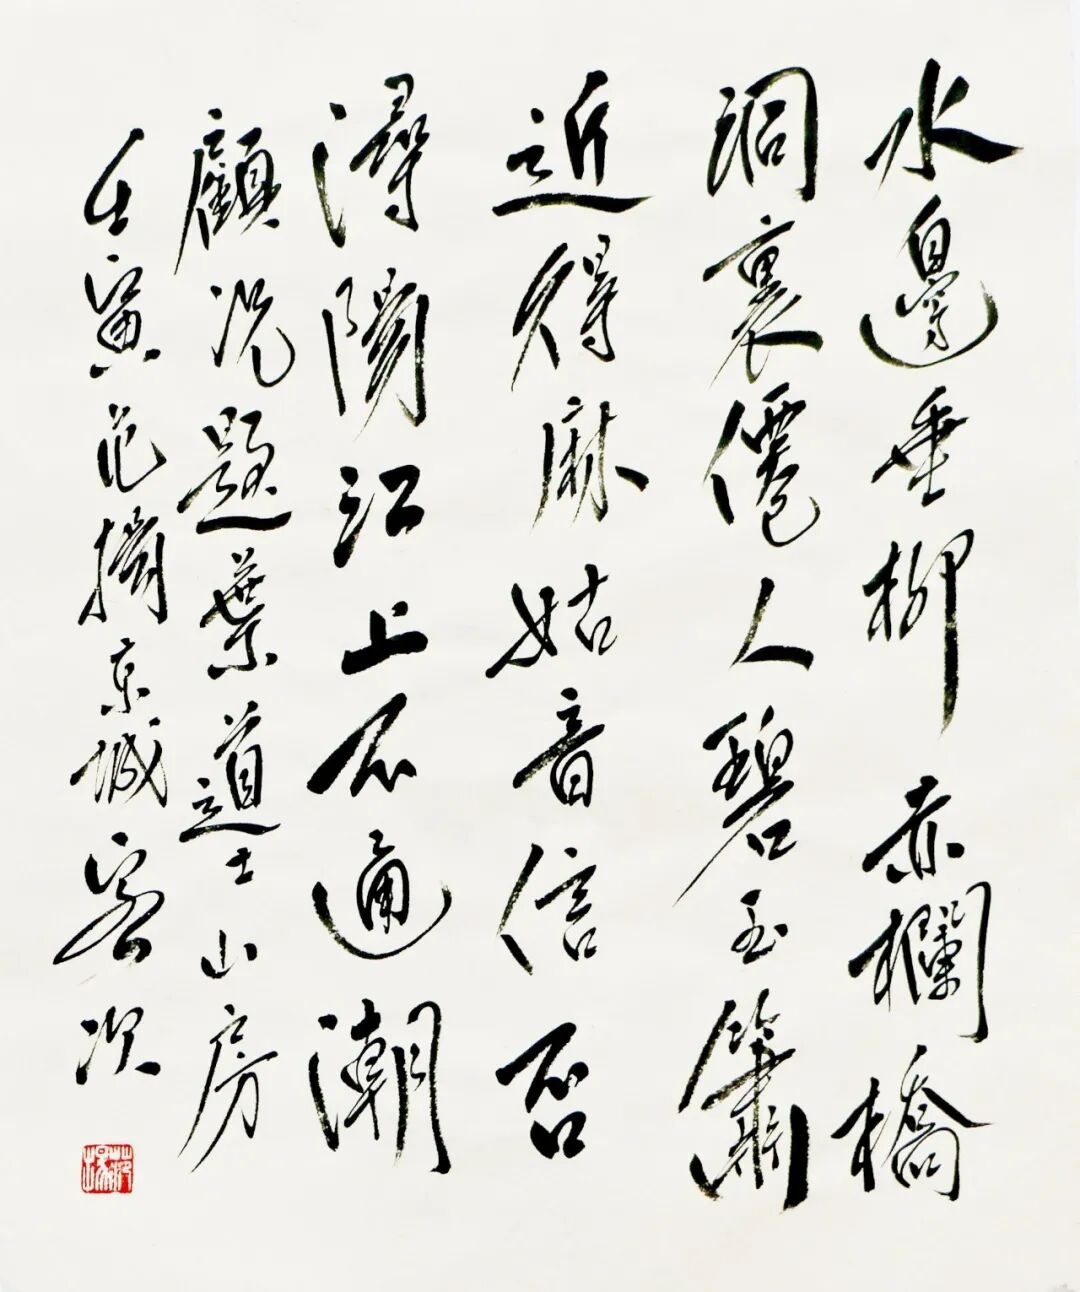 水邊垂柳赤欄橋
洞裏僊人碧玉簫
近得麻姑音信否
潯陽江上不通潮
顧況題葉道士山房
壬寅范揚京城客次